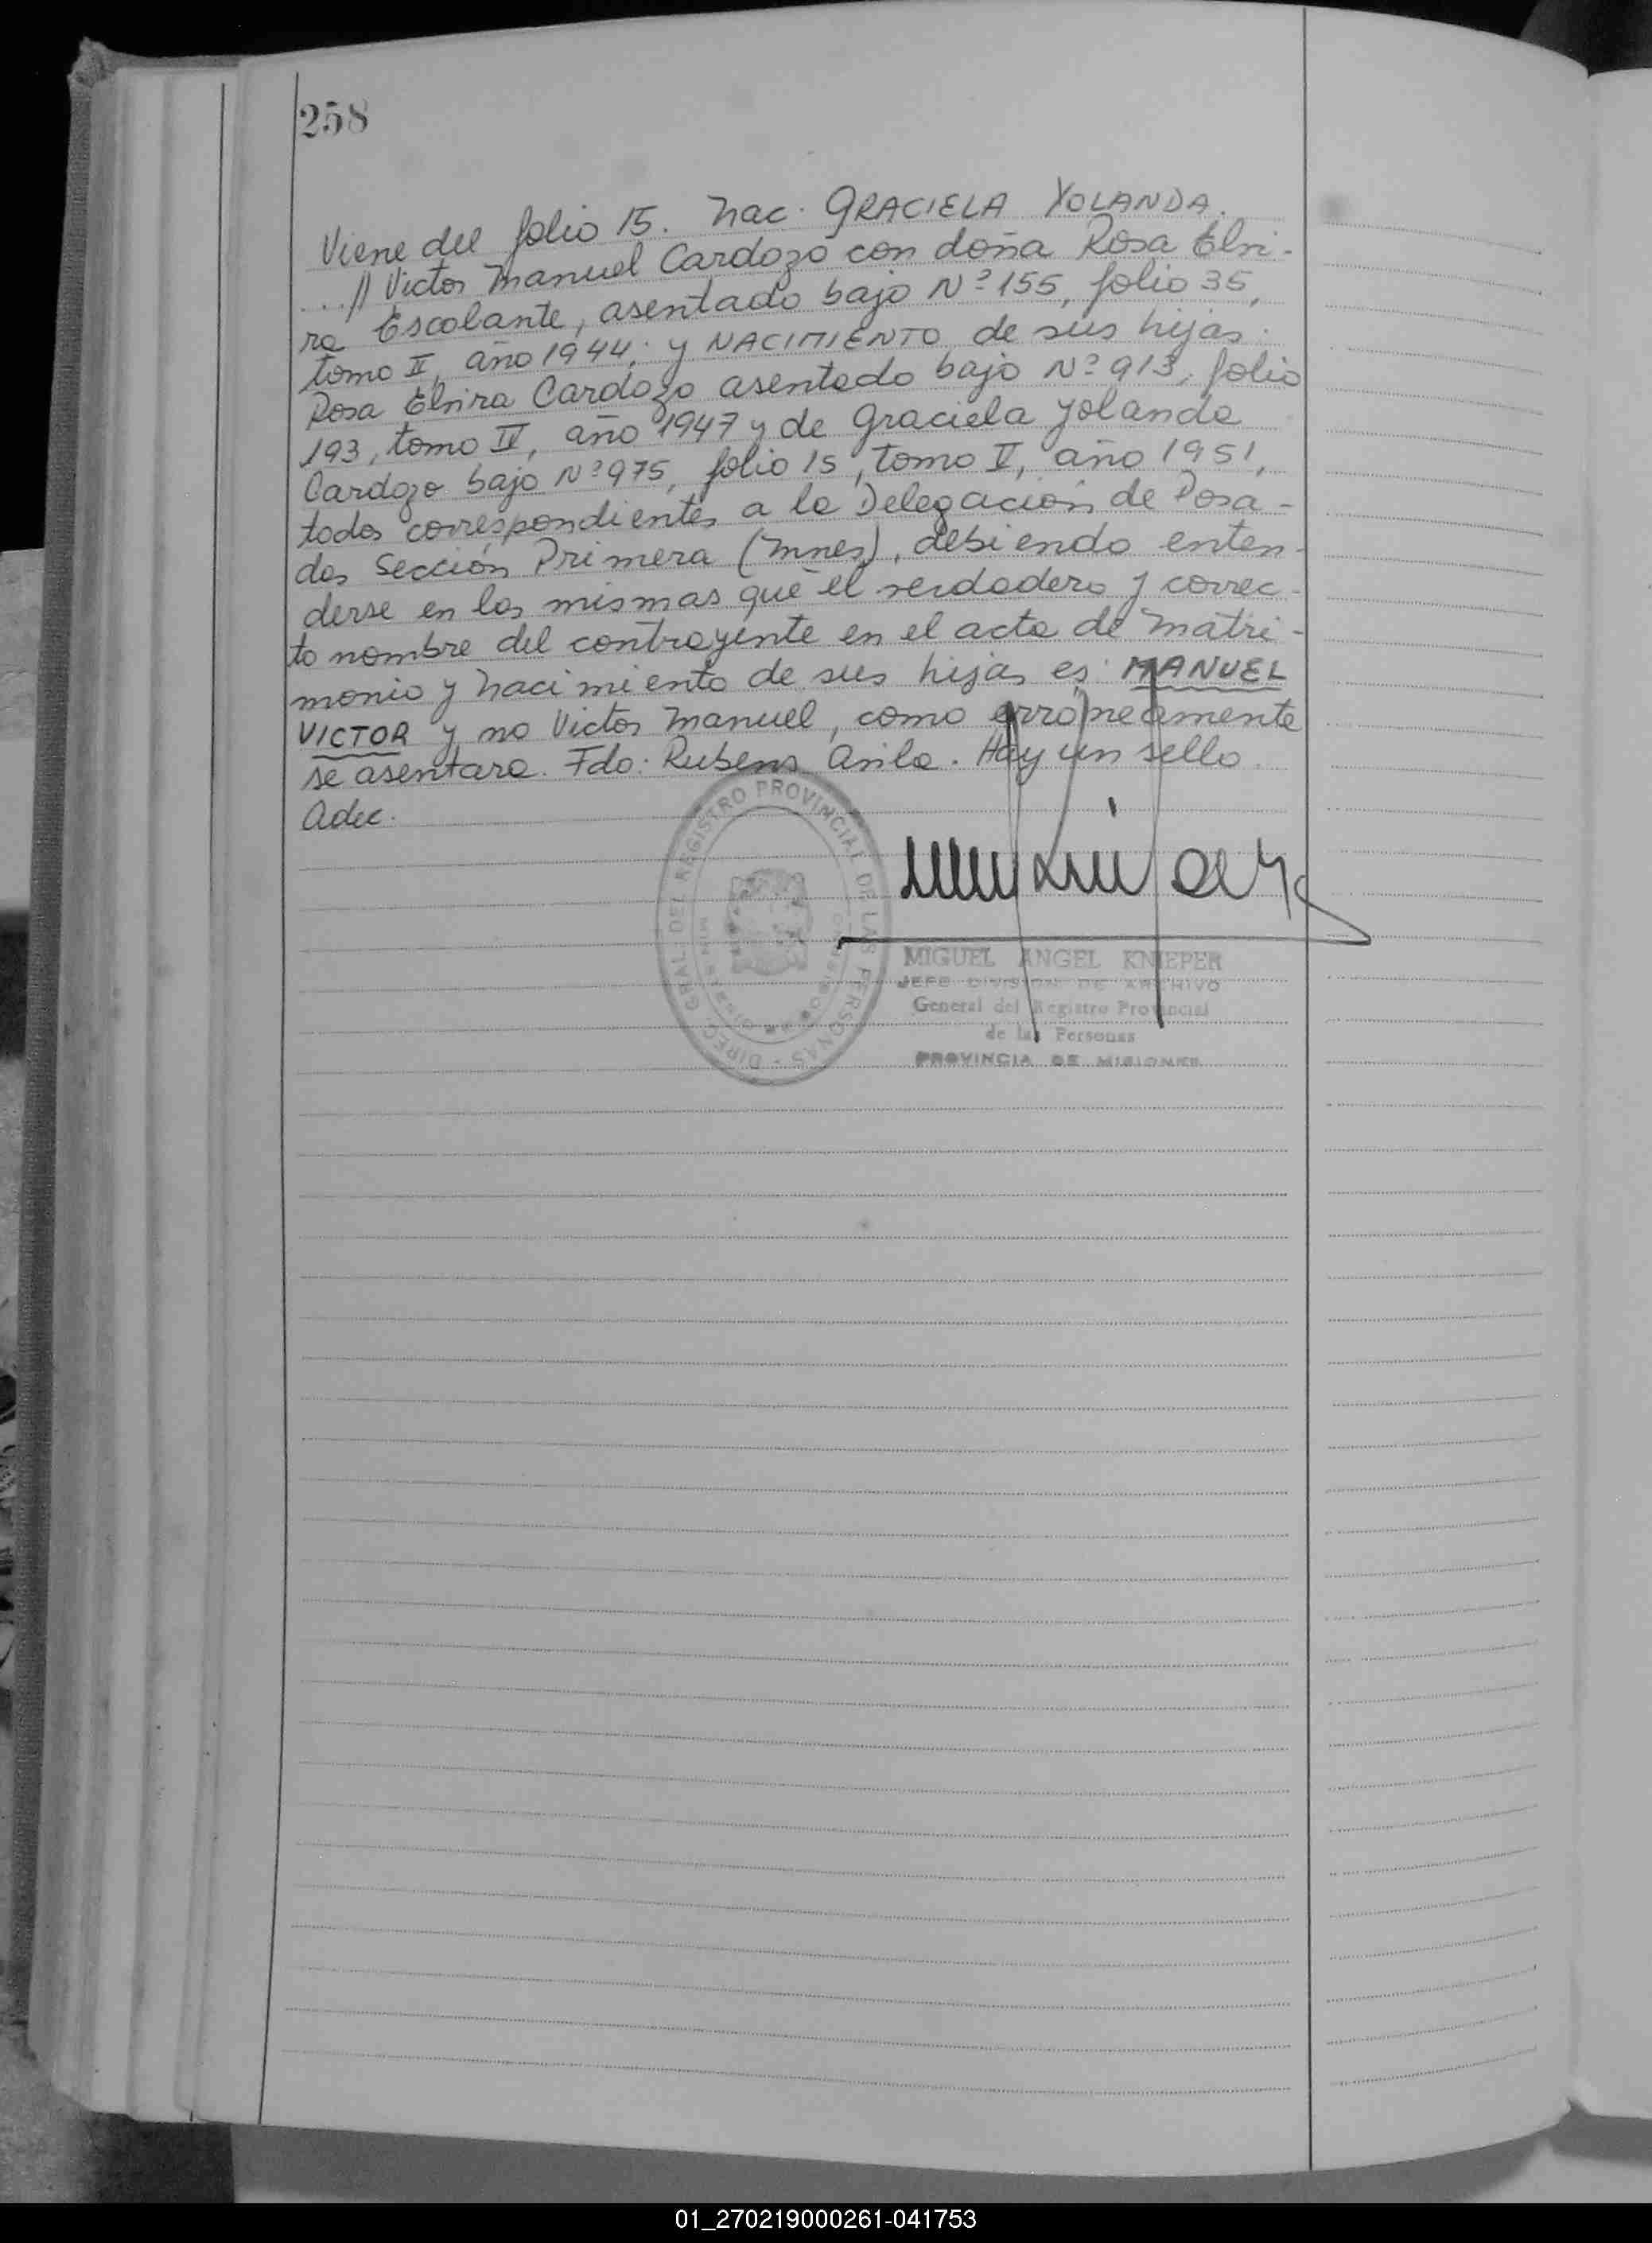 258
Viene del folio 15. Nac. GRACIELA YOLANDA.
...// Victor Manuel Cardozo con doña Rosa Elvi-
ra Escalante, asentado bajo Nº 155, folio 35,
tomo II, año 1944; y NACIMIENTO de sus hijas:
Rosa Elvira Cardozo asentado bajo Nº 913, folio
193, tomo IV, año 1947 y de Graciela Yolanda
Cardozo bajo Nº 975, folio 15, tomo V, año 1951,
todos correspondientes a la Delegación de Posa-
das Sección Primera (Mnes), debiendo enten-
derse en las mismas que el verdadero y correc-
to nombre del contrayente en el acta de matri-
monio y nacimiento de sus hijas es: MANUEL
VICTOR y no Victor Manuel, como erróneamente
se asentara. Fdo: Rubens Avila. Hay un sello.
Adec.
DIREC. GRAL. DEL REGISTRO PROVINCIAL DE LAS PERSONAS
MISIONES
MIGUEL ANGEL KNIEPER
JEFE DIVISION DE ARCHIVO
General del Registro Provincial
de las Personas
PROVINCIA DE MISIONES
01_270219000261-041753